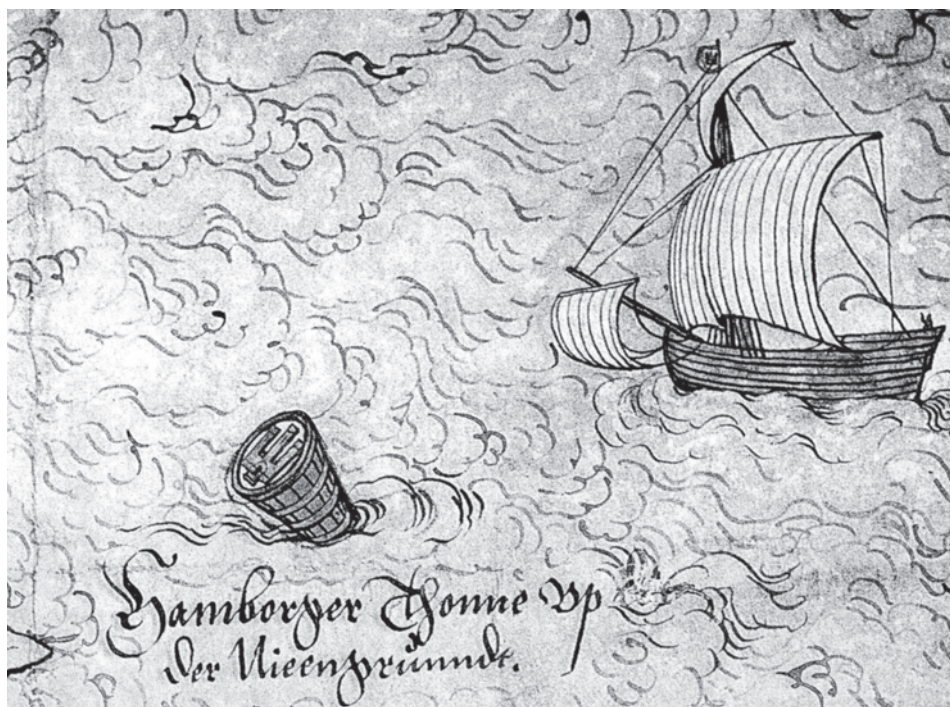 Hamborger Thonne Vp
der Nieengrůnndt.